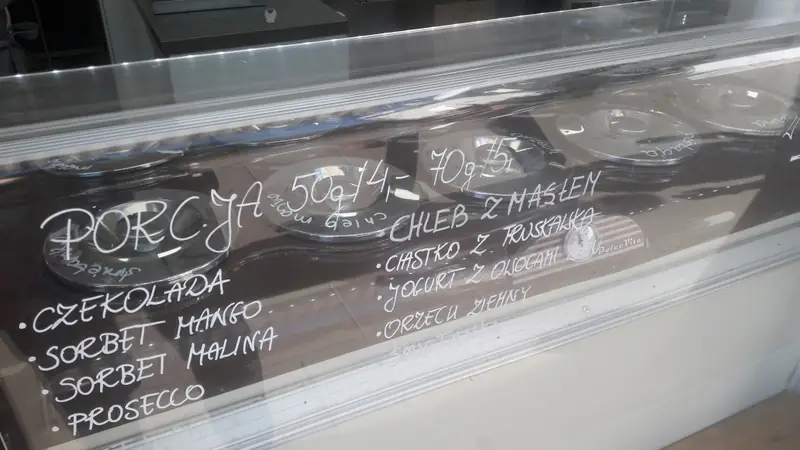 PORCJA 50g/4,- 70g/5,-
• CZEKOLADA
• SORBET MANGO
• SORBET MALINA
• PROSECCO
• CHLEB Z MASŁEM
• CIASTKO Z TRUSKAWKĄ
• JOGURT Z OWOCAMI
• ORZECH ZIEMNY
Dolce Vita